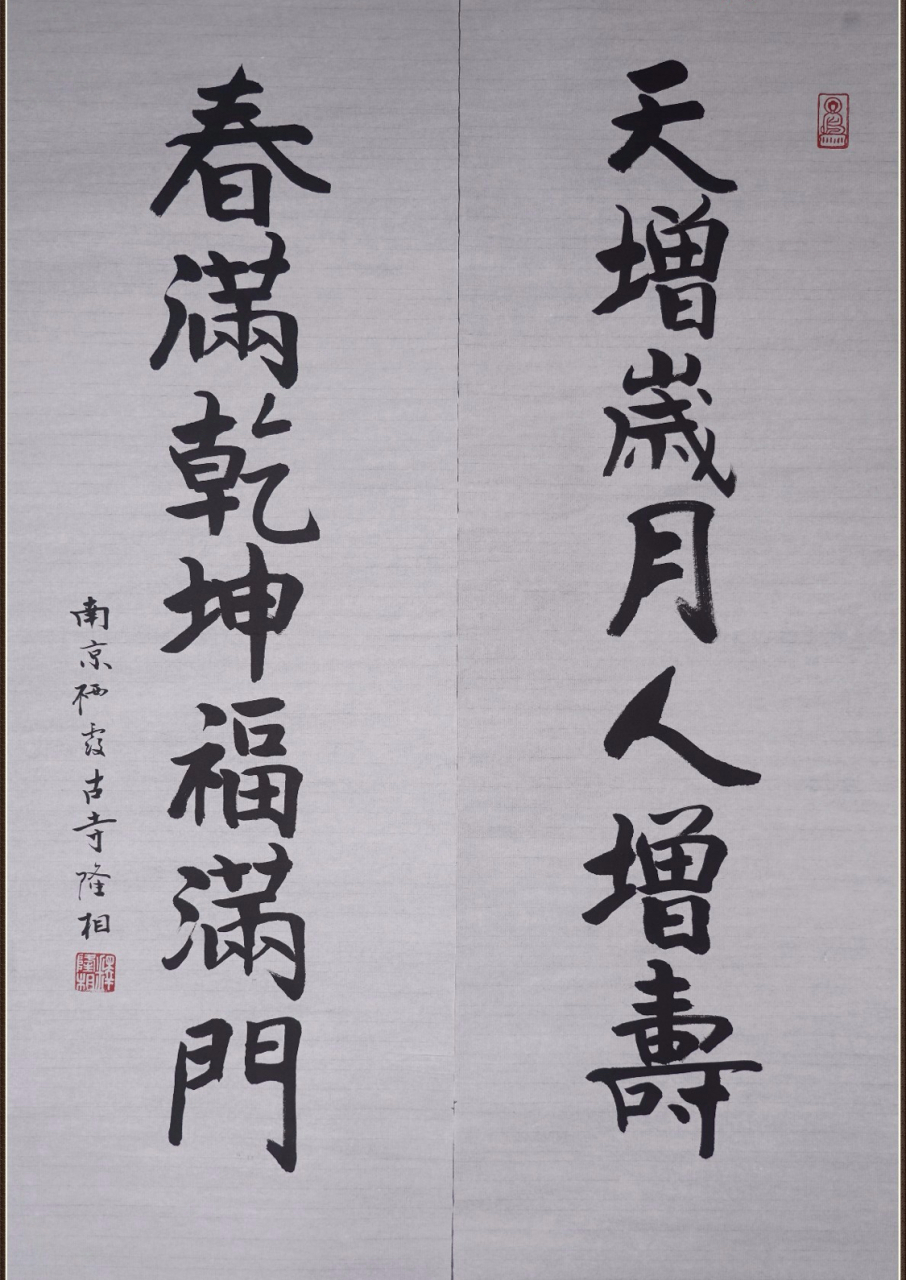 天增歲月人增壽
春滿乾坤福滿門
南京栖霞古寺隆相
釋隆相